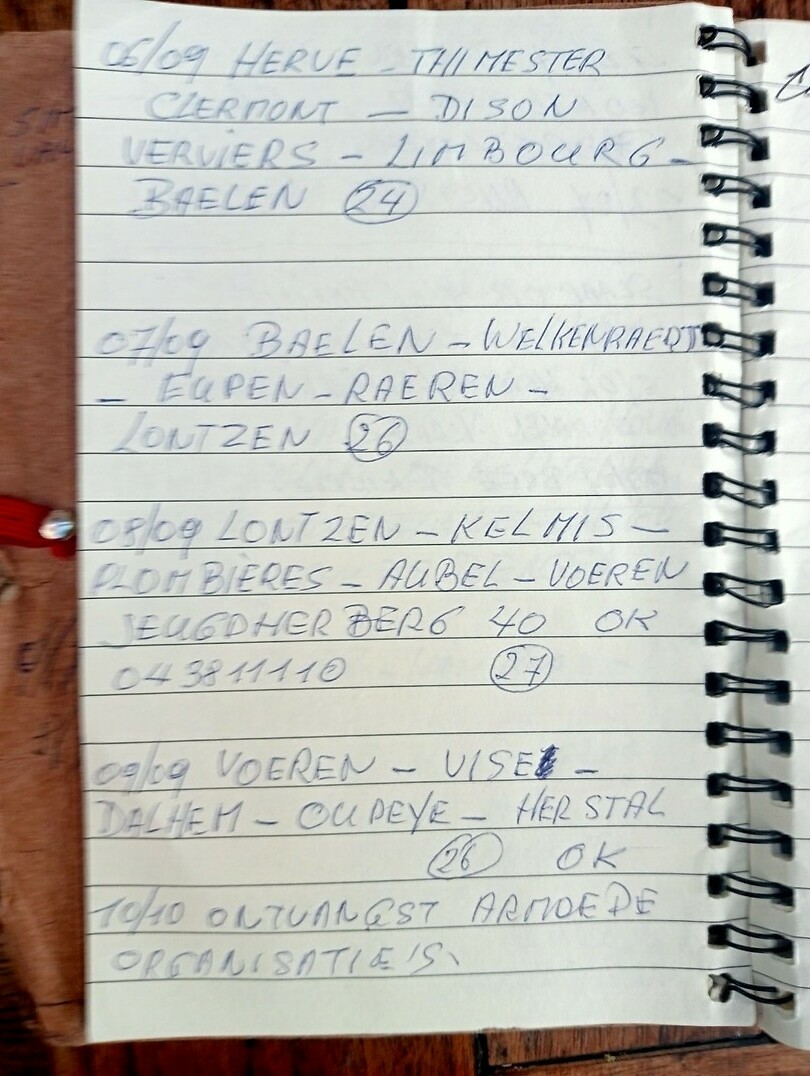 06/09 HERVE - THIMESTER
CLERMONT - DISON
VERVIERS - LIMBOURG -
BAELEN 24
07/09 BAELEN - WELKENRAEDT
- EUPEN - RAEREN -
LONTZEN 26
08/09 LONTZEN - KELMIS -
PLOMBIÈRES - AUBEL - VOEREN
JEUGDHERBERG 40 OK
043811110 27
09/09 VOEREN - VISE -
DALHEM - OUPEYE - HERSTAL
26 OK
10/10 ONTVANGST ARMOEDE
ORGANISATIE'S